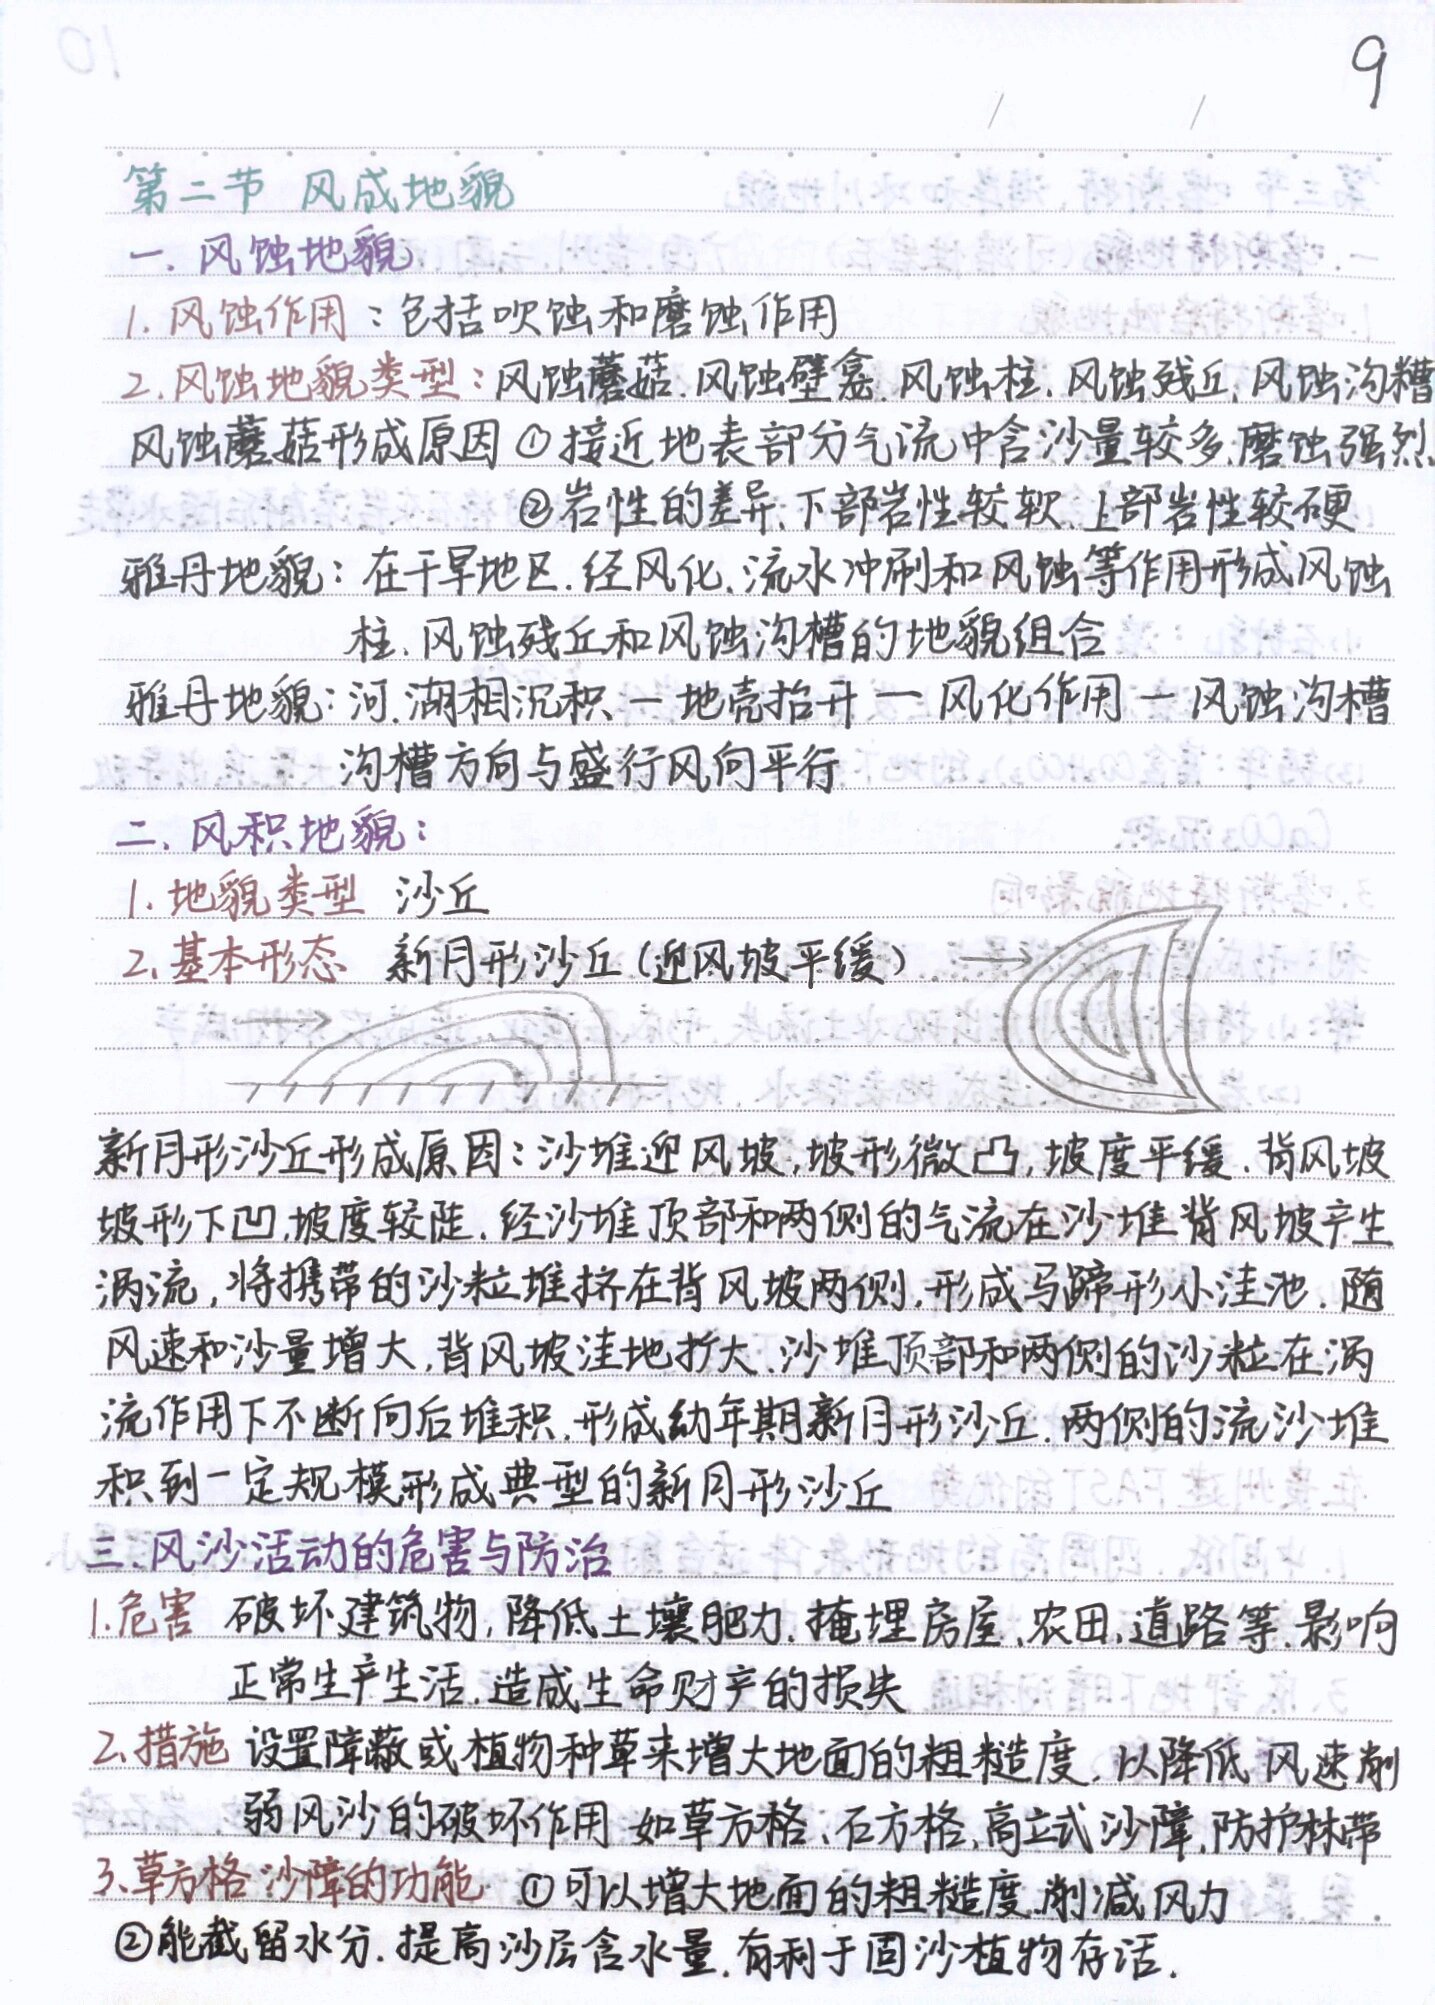 9
第二节 风成地貌
一、风蚀地貌
1. 风蚀作用：包括吹蚀和磨蚀作用
2. 风蚀地貌类型：风蚀蘑菇、风蚀壁龛、风蚀柱、风蚀残丘、风蚀沟槽
风蚀蘑菇形成原因 ①接近地表部分气流中含沙量较多，磨蚀强烈
②岩性的差异，下部岩性较软，上部岩性较硬
雅丹地貌：在干旱地区，经风化、流水冲刷和风蚀等作用形成风蚀
柱、风蚀残丘和风蚀沟槽的地貌组合
雅丹地貌：河、湖相沉积 — 地壳抬升 — 风化作用 — 风蚀沟槽
沟槽方向与盛行风向平行
二、风积地貌：
1. 地貌类型 沙丘
2. 基本形态 新月形沙丘（迎风坡平缓）
新月形沙丘形成原因：沙堆迎风坡，坡形微凸，坡度平缓，背风坡
坡形下凹，坡度较陡，经沙堆顶部和两侧的气流在沙堆背风坡产生
涡流，将携带的沙粒堆挤在背风坡两侧，形成马蹄形小洼池，随
风速和沙量增大，背风坡洼地扩大，沙堆顶部和两侧的沙粒在涡
流作用下不断向后堆积，形成幼年期新月形沙丘，两侧的流沙堆
积到一定规模形成典型的新月形沙丘
三、风沙活动的危害与防治
1. 危害 破坏建筑物，降低土壤肥力，掩埋房屋、农田、道路等，影响
正常生产生活，造成生命财产的损失
2. 措施 设置障蔽或植物种草来增大地面的粗糙度，以降低风速削
弱风沙的破坏作用 如草方格、石方格、高立式沙障，防护林带
3、草方格沙障的功能 ①可以增大地面的粗糙度，削减风力
②能截留水分，提高沙层含水量，有利于固沙植物存活.